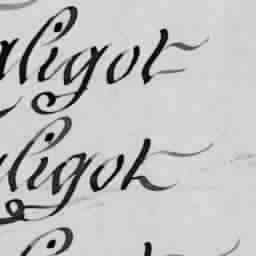 aligot
aligot